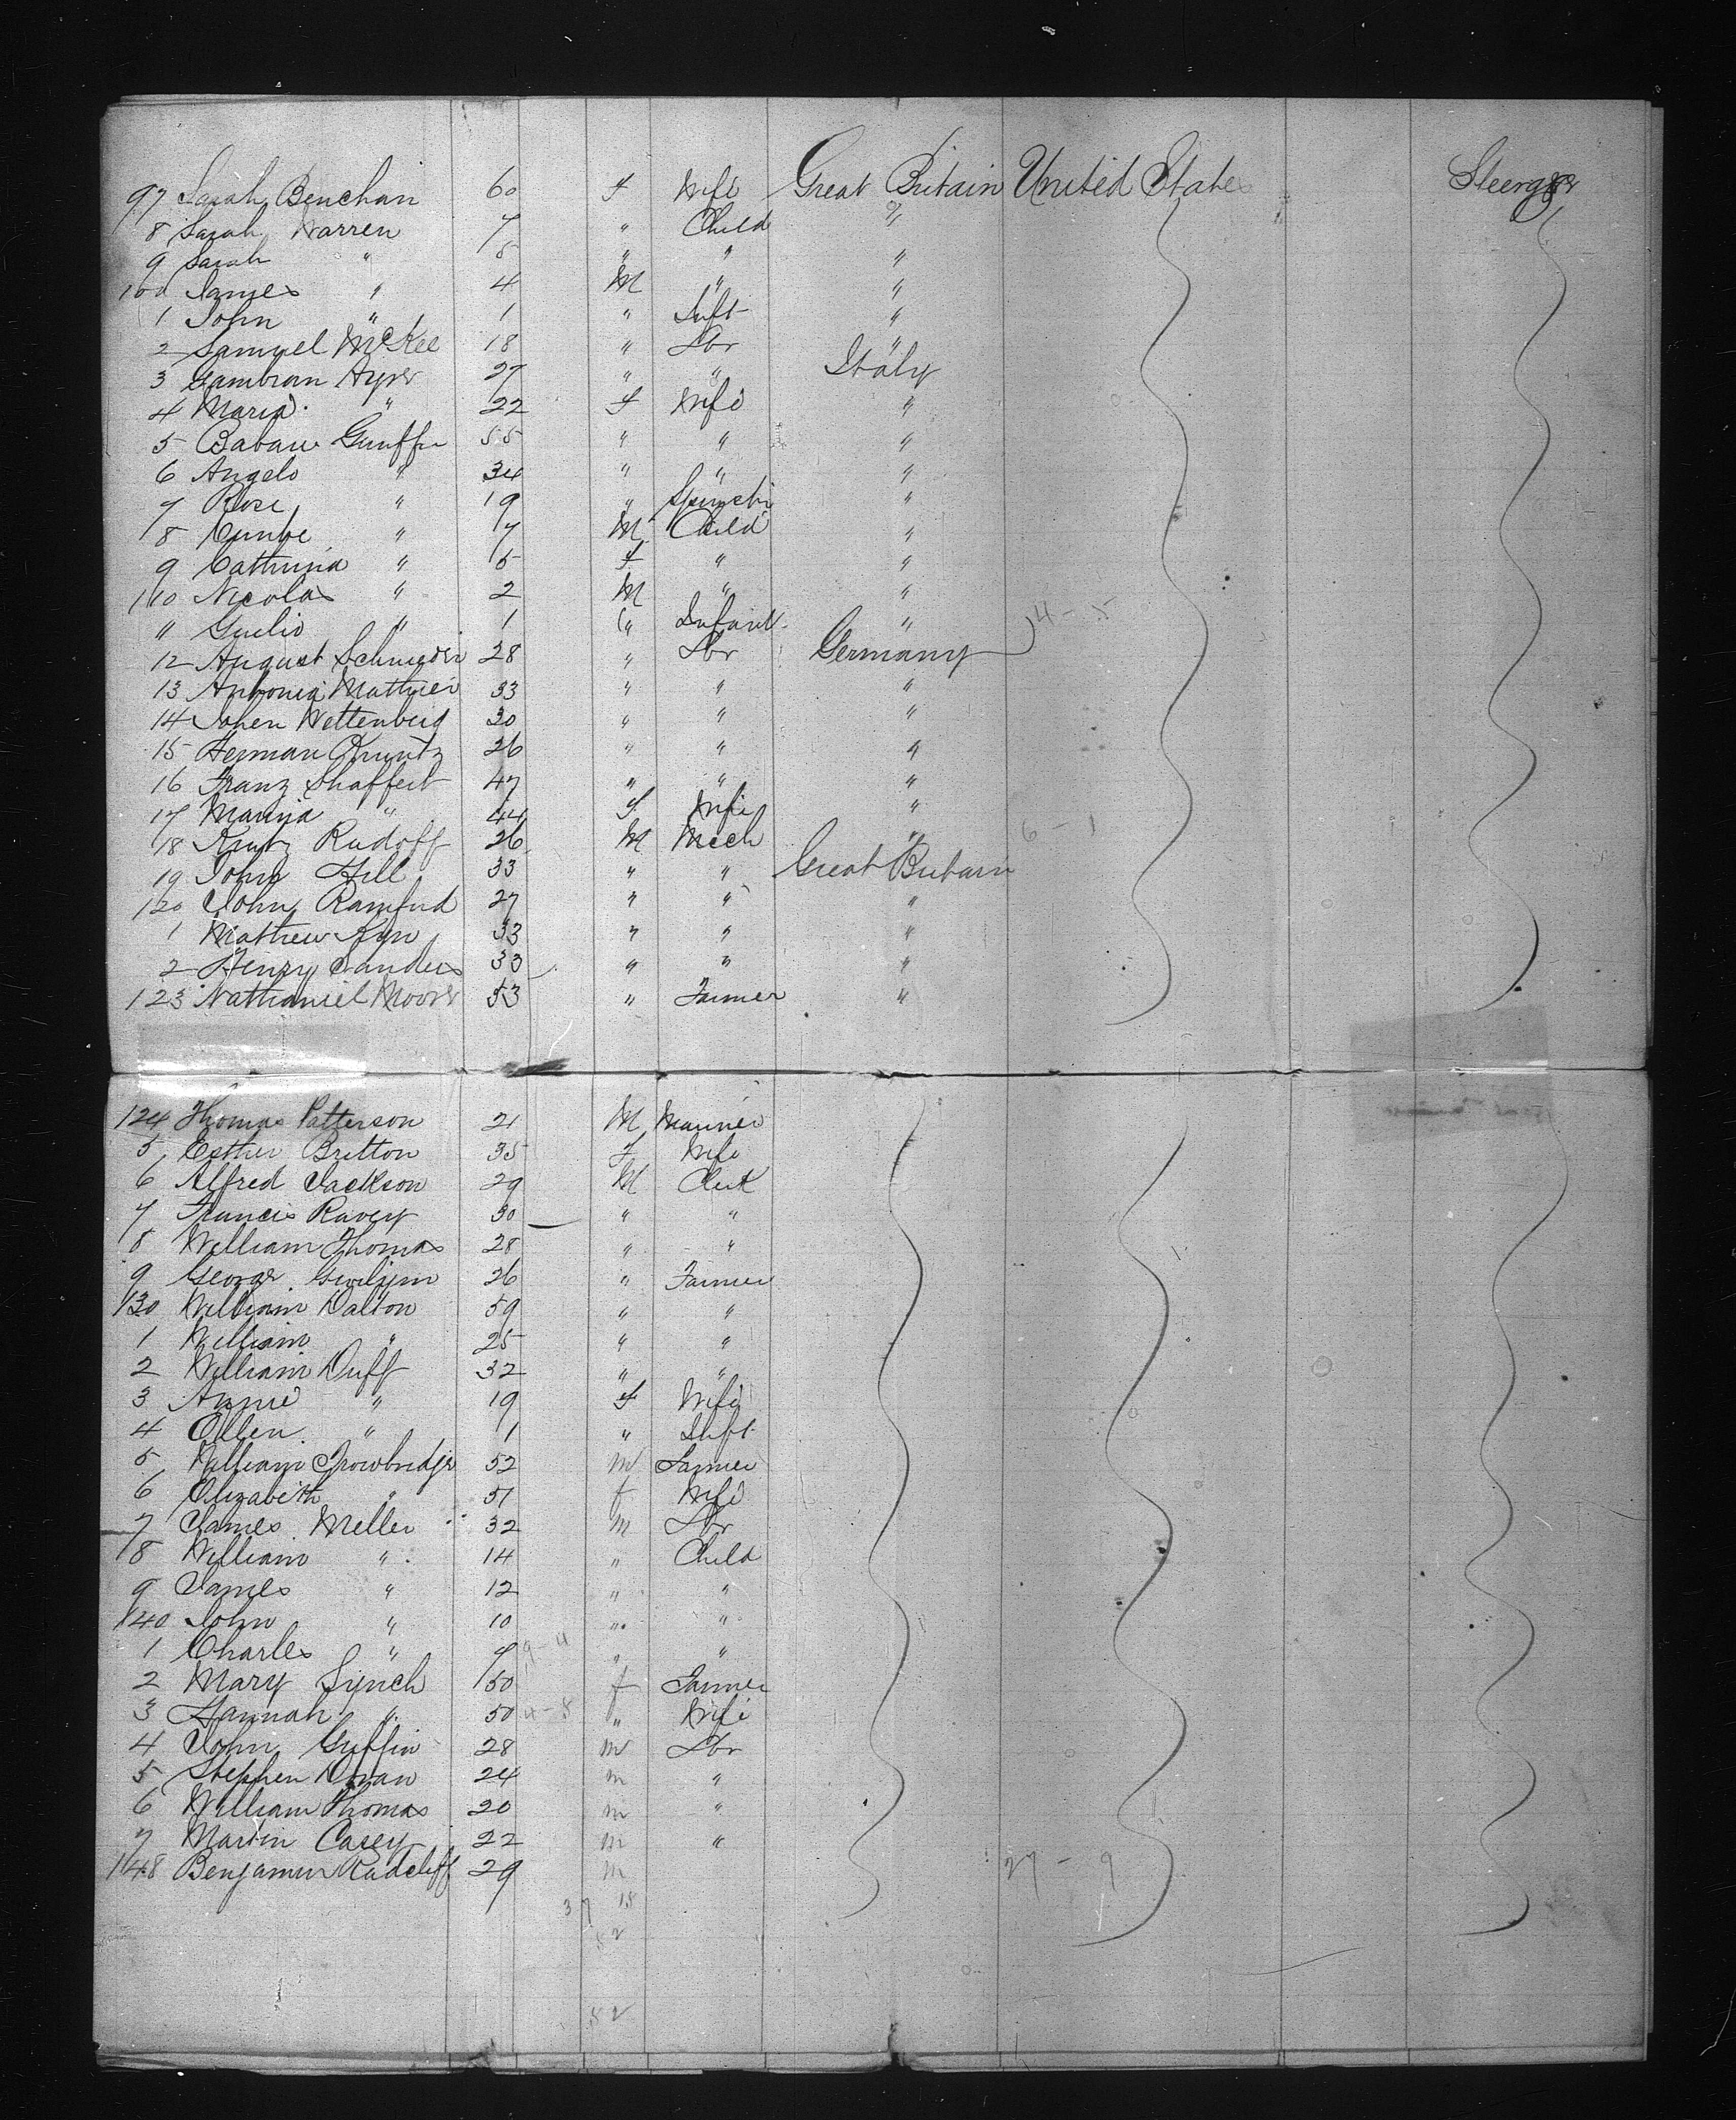 97 Sarah Benchan 60 f Wife Great Britain United States Steerage
8 Sarah Warren 7 " Child "
9 Sarah " 5 " " "
100 James " 4 M " "
1 John " 1 " Inft "
2 Samuel McKee 18 " Lbr "
3 Gambron Ayer 27 " " Italy
4 Maria " 22 f Wife "
5 Babau Gunffu 55 " " "
6 Angelo " 34 " " "
7 Rose " 19 " "
8 " 7 M Child "
9 Cathrina " 5 f " "
110 Nicolas " 2 M " "
11 Guilio " 1 " Infant "
12 August Schnieder 28 " Lbr Germany 4-5
13 Antonia Mathier 33 " " "
14 Johen Wettenberg 30 " " "
15 Herman Kruntz 26 " " "
16 Franz Shaffert 47 " " "
17 Marija " 44 f Wife "
18 Krutz Rudolf 26 M Mech " 6-1
19 John Hill 33 " " Great Britain
120 John Ramfird 27 " " "
1 Mathew Kyn 33 " " "
2 Henry Sanders 33 " " "
123 Nathaniel Moore 53 " Farmer "
124 Thomas Patterson 21 M Marinei
5 Esther Britton 35 f Wife
6 Alfred Jackson 29 M Clerk
7 Francis Ravey 30 " "
8 William Thomas 28 " "
9 George Gwilym 26 " Farmer
130 William Dalton 59 " "
1 William " 25 " "
2 William Duff 32 " "
3 Annie " 19 f Wife
4 Ellen " 1 " Inft
5 William Trowbridge 52 m Farmer
6 Elizabeth " 51 f Wife
7 James Meller 32 m Lbr
8 William " 14 " Child
9 James " 12 " "
140 John " 10 " "
1 Charles " 9 " "
2 Mary Lynch 50 f Farmer
3 Hannah " 50 4-8 " Wife
4 John Griffin 28 m Lbr
5 Stephen Doran 24 m "
6 William Thomas 20 m "
7 Martin Casey 22 m "
148 Benjamin Radcliff 29 m 27-9
37 18
52
52